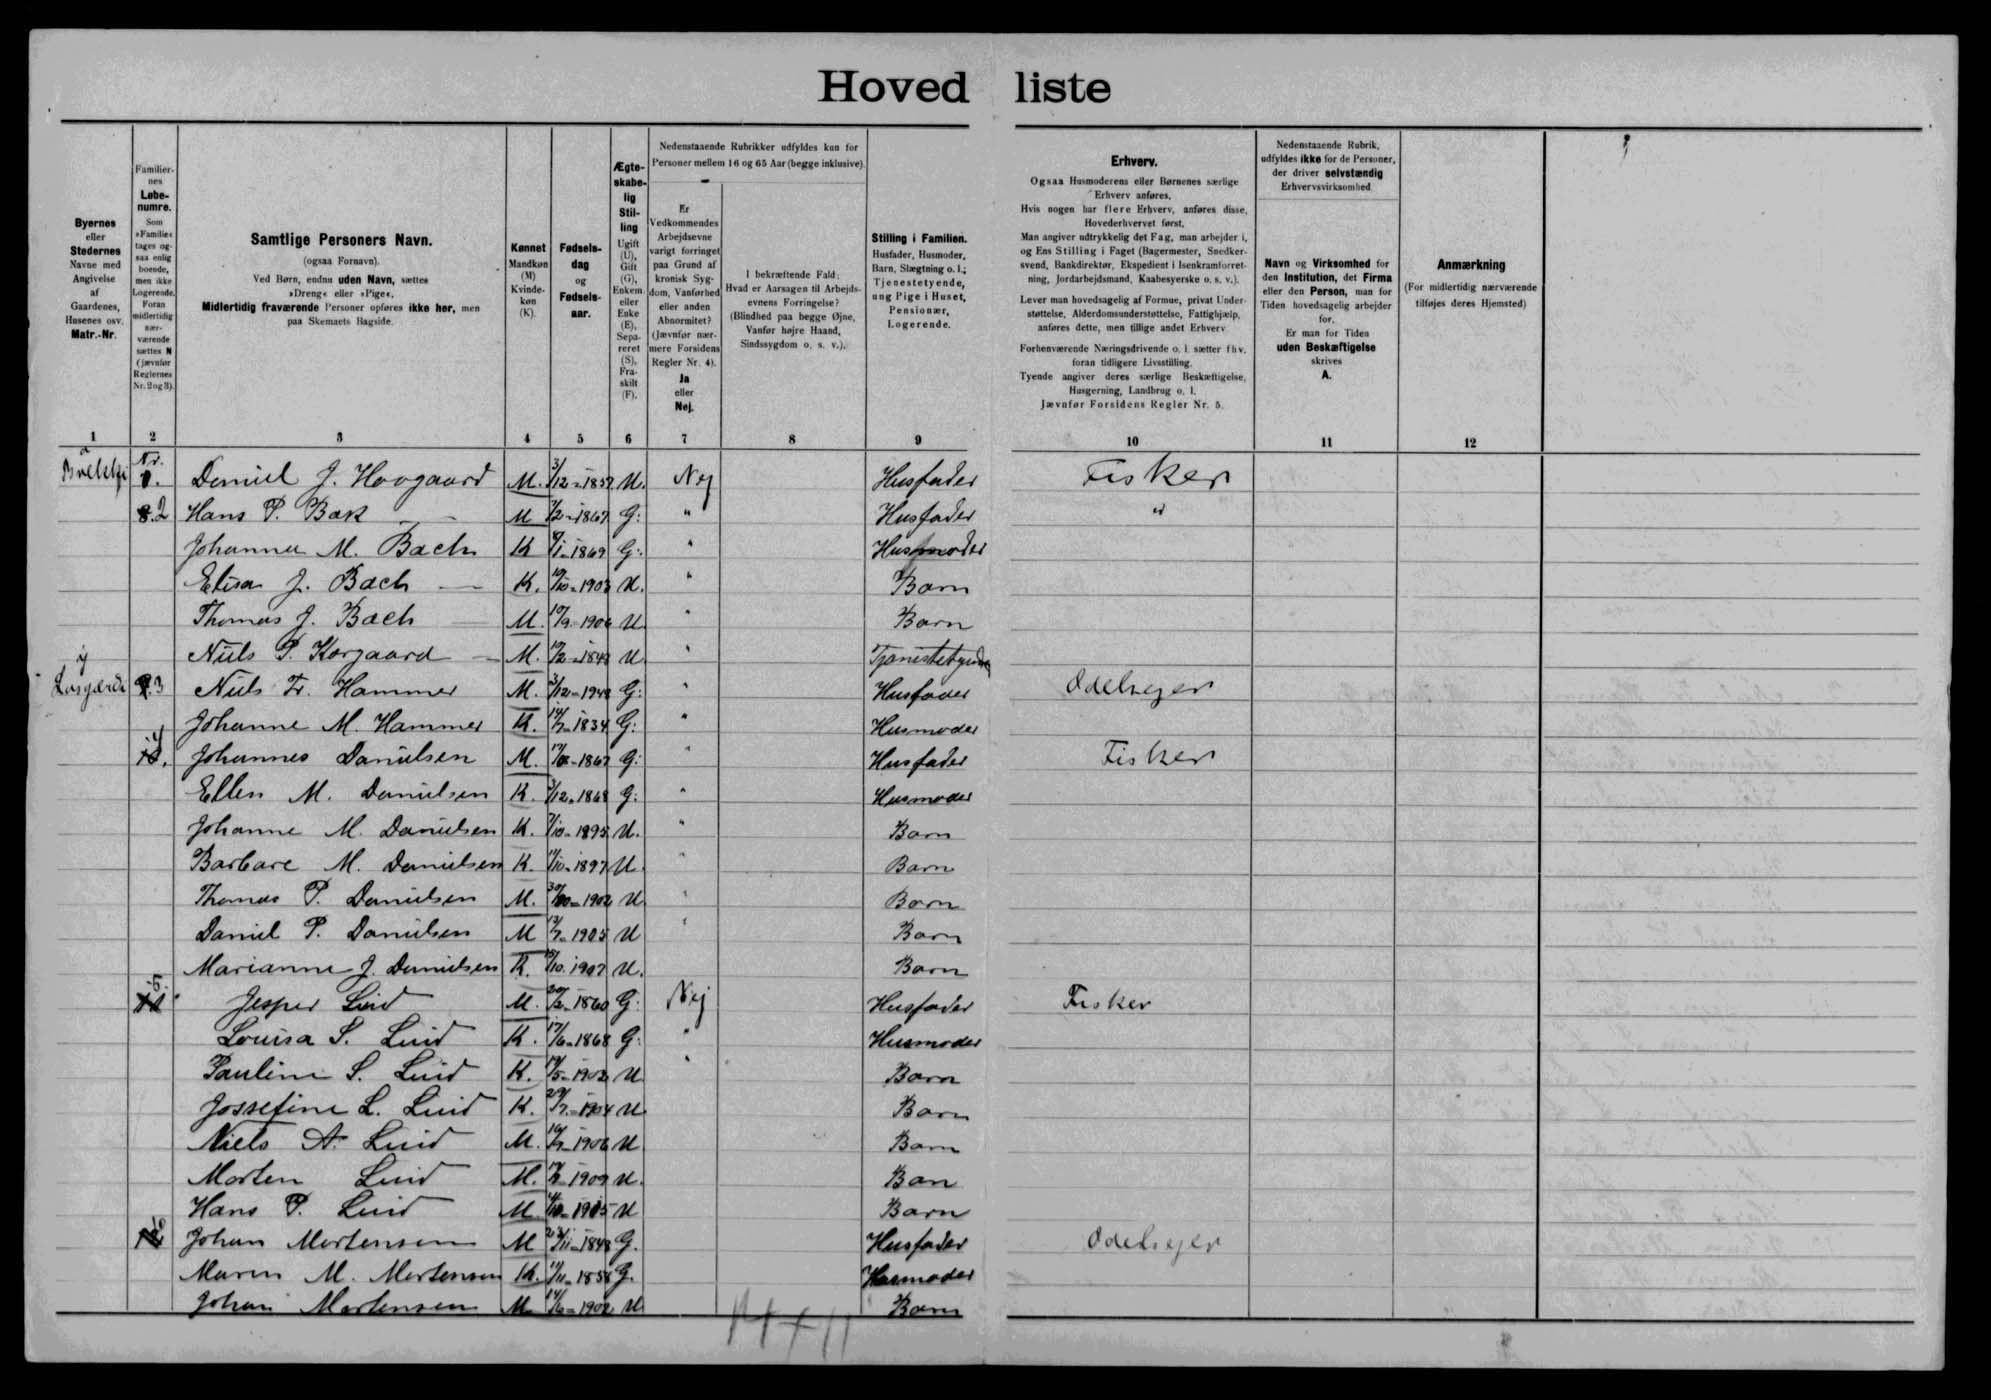 Hoved liste
Byernes
eller
Stedernes
Navne med
Angivelse
af
Gaardenes,
Husenes osv.
Matr.-Nr.
Familier-
nes
Løbe-
numre.
Som
»Familie«
tages og-
saa enlig
boende,
men ikke
Logerende.
Foran
midlertidig
nær-
værende
sættes N
(jævnfør
Reglernes
Nr. 2 og 3).
Samtlige Personers Navn.
(ogsaa Fornavn).
Ved Børn, endnu uden Navn, sættes
»Dreng« eller »Pige«.
Midlertidig fraværende Personer opføres ikke her, men
paa Skemaets Bagside.
Kønnet
Mandkøn
(M)
Kvinde-
køn
(K).
Fødsels-
dag
og
Fødsels-
aar.
Ægte-
skabe-
lig
Stil-
ling
Ugift
(U),
Gift
(G),
Enkem.
eller
Enke
(E),
Sepa-
reret
(S),
Fra-
skilt
(F).
Nedenstaaende Rubrikker udfyldes kun for
Personer mellem 16 og 65 Aar (begge inklusive).
Er
Vedkommendes
Arbejdsevne
varigt forringet
paa Grund af
kronisk Syg-
dom, Vanførhed
eller anden
Abnormitet?
(Jævnfør nær-
mere Forsidens
Regler Nr. 4).
Ja
eller
Nej.
I bekræftende Fald:
Hvad er Aarsagen til Arbejds-
evnens Forringelse?
(Blindhed paa begge Øjne,
Vanfør højre Haand,
Sindssygdom o. s. v.).
Stilling i Familien.
Husfader, Husmoder,
Barn, Slægtning o. l.;
Tjenestetyende,
ung Pige i Huset,
Pensionær,
Logerende.
Erhverv.
Ogsaa Husmoderens eller Børnenes særlige
Erhverv anføres,
Hvis nogen har flere Erhverv, anføres disse,
Hovederhvervet først,
Man angiver udtrykkelig det Fag, man arbejder i,
og Ens Stilling i Faget (Bagermester, Snedker-
svend, Bankdirektør, Ekspedient i Isenkramforret-
ning, Jordarbejdsmand, Kaabesyerske o. s. v.).
Lever man hovedsagelig af Formue, privat Under-
støttelse, Alderdomsunderstøttelse, Fattighjælp,
anføres dette, men tillige andet Erhverv
Forhenværende Næringsdrivende o. l. sætter fhv.
foran tidligere Livsstilling.
Tyende angiver deres særlige Beskæftigelse,
Husgerning, Landbrug o. l.
Jævnfør Forsidens Regler Nr. 5.
Nedenstaaende Rubrik,
udfyldes ikke for de Personer,
der driver selvstændig
Erhvervsvirksomhed
Navn og Virksomhed for
den Institution, det Firma
eller den Person, man for
Tiden hovedsagelig arbejder
for.
Er man for Tiden
uden Beskæftigelse
skrives
A.
Anmærkning
(For midlertidig nærværende
tilføjes deres Hjemsted)
1 2 3 4 5 6 7 8 9 10 11 12
Nr. 1. Daniel J. Hovgaard M. 3/12-1857 U. Nej Husfader Fisker
2 Hans P. Bak M 1867 G: " Husfader "
Johanna M. Bach K 1869 G: " Husmoder
Elisa J. Bach K. 1903 U. " Barn
Thomas J. Bach M. 1906 U " Barn
Niels P. Korgaard M. 1848 U " Tjenestetyende
3 Niels Fr. Hammer M. 3/12-1948 G: " Husfader Odelsejer
Johanne M. Hammer K. 14/7-1834 G: " Husmoder
4 Johannes Danielsen M. 1867 G: " Husfader Fisker
Ellen M. Danielsen K. 1868 G: " Husmoder
Johanne M. Danielsen K. 1895 U. " Barn
Barbare M. Danielsen K. 11/10-1897 U. " Barn
Thomas P. Danielsen M. 1902 U " Barn
Daniel P. Danielsen M 1905 U " Barn
Marianne J. Danielsen K. 1907 U. Barn
5. Jesper Lind M. 1860 G: Nej Husfader Fisker
Louisa S. Lind K. 17/6-1868 G: " Husmoder
Pauline S. Lind K. 19/5-1902 U. " Barn
Jossefine L. Lind K. 29/7-1904 U Barn
Niels A. Lind M. 1906 U Barn
Morten Lind M. 1909 U. Barn
Hans P. Lind M 1905 U Barn
6 Johan Mortensen M 23/11-1848 G. Husfader Odelsejer
Maren M. Mortensen K. 11/11-1858 G. Husmoder
Johan Mortensen M 14/6-1902 U Barn
14+11